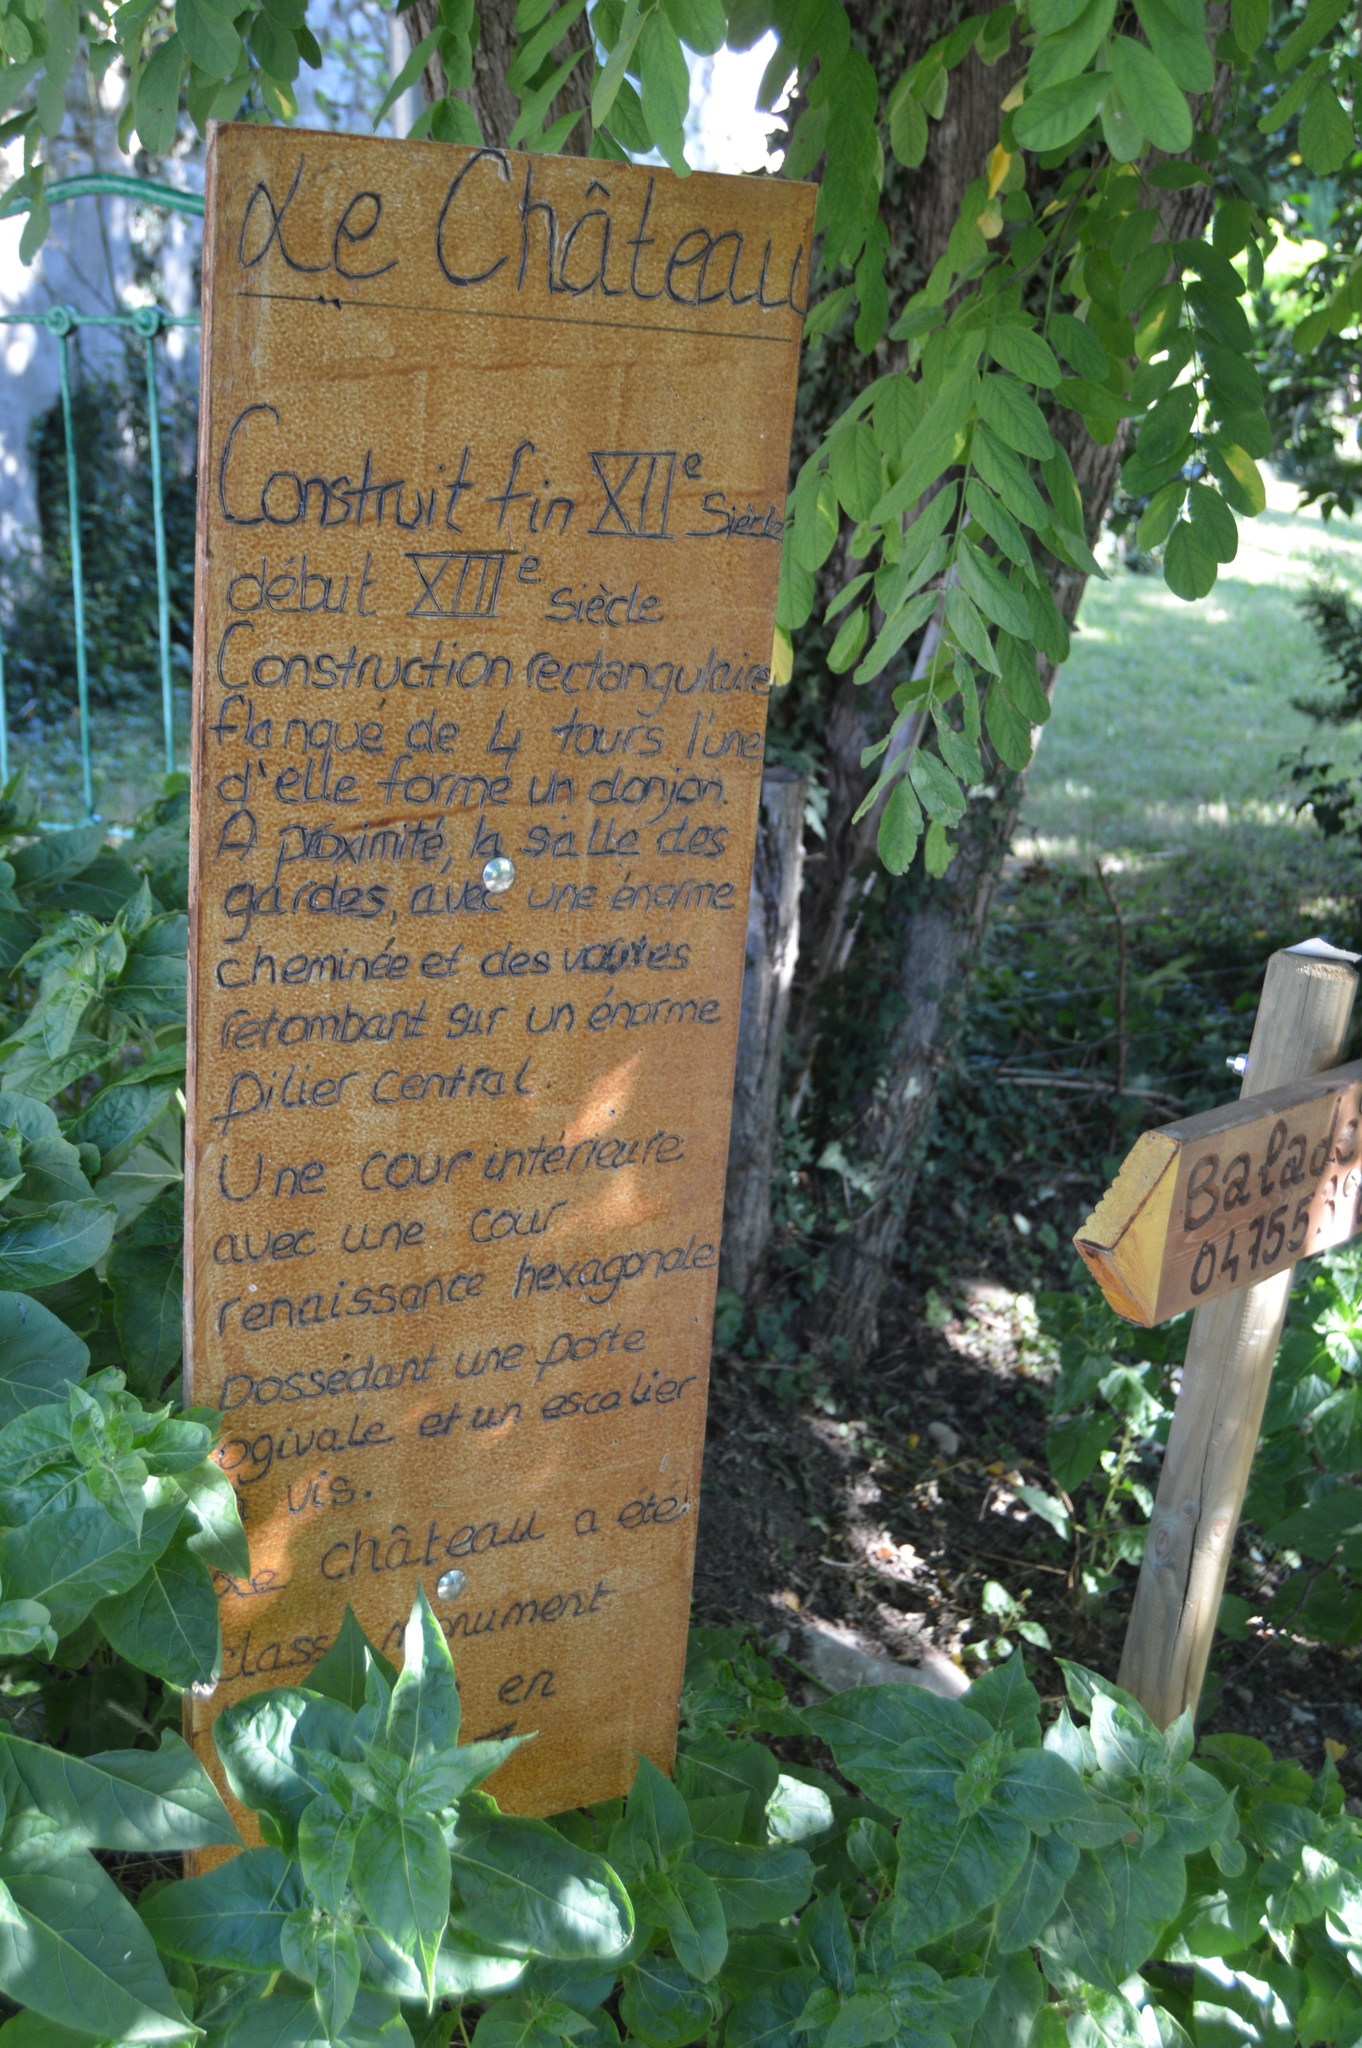 Le Château
Construit fin XIIe Siècle
début XIIIe Siècle
Construction rectangulaire
flanqué de 4 tours l'une
d'elle forme un donjon.
A proximité, la salle des
gardes, avec une énorme
cheminée et des voutes
retombant sur un énorme
pilier central.
Une cour intérieure
avec une cour
renaissance hexagonale
Possédant une porte
ogivale et un escalier
vis.
Le château a été
monument
en
Balade
04755